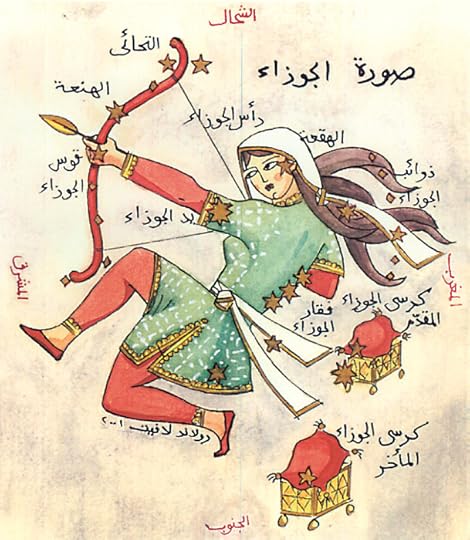 الشمال
صورة الجوزاء
التحائى
الهنعة
رأس الجوزاء
الهقعة
ذوائب
الجوزاء
قوس
الجوزاء
يد الجوزاء
المغرب
المشرق
كرسى الجوزاء
المقدّم
فقار
الجوزاء
كرسى الجوزاء
المأخر
رولاند لافيت
الجنوب